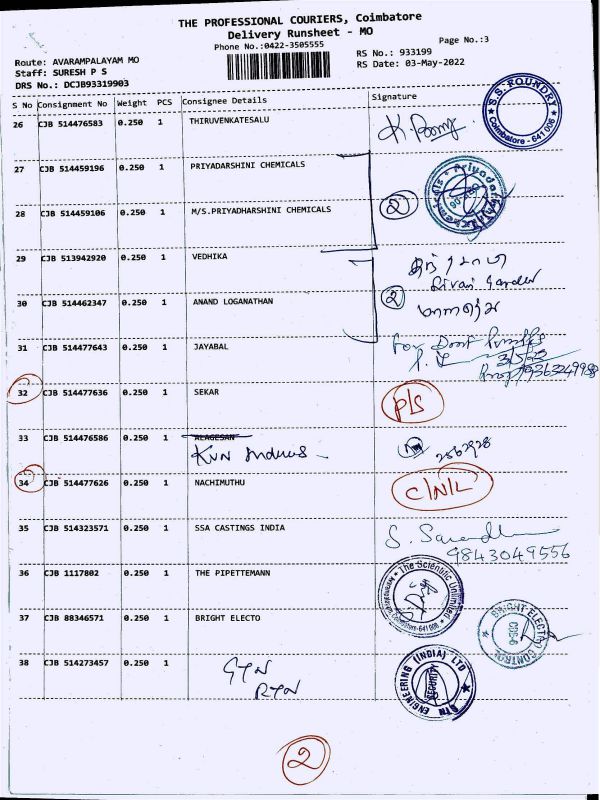 THE PROFESSIONAL COURIERS, Coimbatore
Delivery Runsheet - MO
Phone No.:0422-3505555
Page No.:3
Route: AVARAMPALAYAM MO
Staff: SURESH P S
DRS No.: DCJB93319903
RS No.: 933199
RS Date: 03-May-2022
S No Consignment No Weight PCS Consignee Details Signature
26 CJB 514476583 0.250 1 THIRUVENKATESALU
S.S. FOUNDRY Coimbatore - 641 006
27 CJB 514459196 0.250 1 PRIYADARSHINI CHEMICALS
28 CJB 514459106 0.250 1 M/S.PRIYADHARSHINI CHEMICALS 2
29 CJB 513942920 0.250 1 VEDHIKA
30 CJB 514462347 0.250 1 ANAND LOGANATHAN 2
31 CJB 514477643 0.250 1 JAYABAL For
32 CJB 514477636 0.250 1 SEKAR P/S
33 CJB 514476586 0.250 1 ALAGESAN
KVN
34 CJB 514477626 0.250 1 NACHIMUTHU C/N/L
35 CJB 514323571 0.250 1 SSA CASTINGS INDIA
9843049556
36 CJB 1117802 0.250 1 THE PIPETTEMANN The Scientific
37 CJB 88346571 0.250 1 BRIGHT ELECTO BRIGHT ELECTO CONTROL
38 CJB 514273457 0.250 1 GTN
RTN
GTN ENGINEERING (INDIA) LTD SECURITY
2